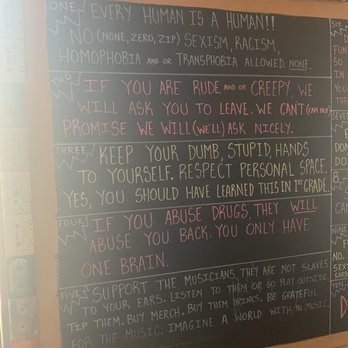 ONE. EVERY HUMAN IS A HUMAN!!
NO (NONE, ZERO, ZIP) SEXISM, RACISM,
HOMOPHOBIA AND OR TRANSPHOBIA ALLOWED. NONE.
IF YOU ARE RUDE AND OR CREEPY, WE
WILL ASK YOU TO LEAVE. WE CAN'T
PROMISE WE WILL (WE'LL) ASK NICELY.
THREE. KEEP YOUR DUMB, STUPID, HANDS
TO YOURSELF. RESPECT PERSONAL SPACE.
YES, YOU SHOULD HAVE LEARNED THIS IN 1ST GRADE.
FOUR. IF YOU ABUSE DRUGS, THEY WILL
ABUSE YOU BACK. YOU ONLY HAVE
ONE BRAIN.
FIVE. SUPPORT THE MUSICIANS. THEY ARE NOT SLAVES
TO YOUR EARS. LISTEN TO THEM OR GO PLAY OUTSIDE.
TIP THEM. BUY MERCH. BUY THEM DRINKS. BE GRATEFUL
FOR THE MUSIC. IMAGINE A WORLD WITH NO MUSIC.